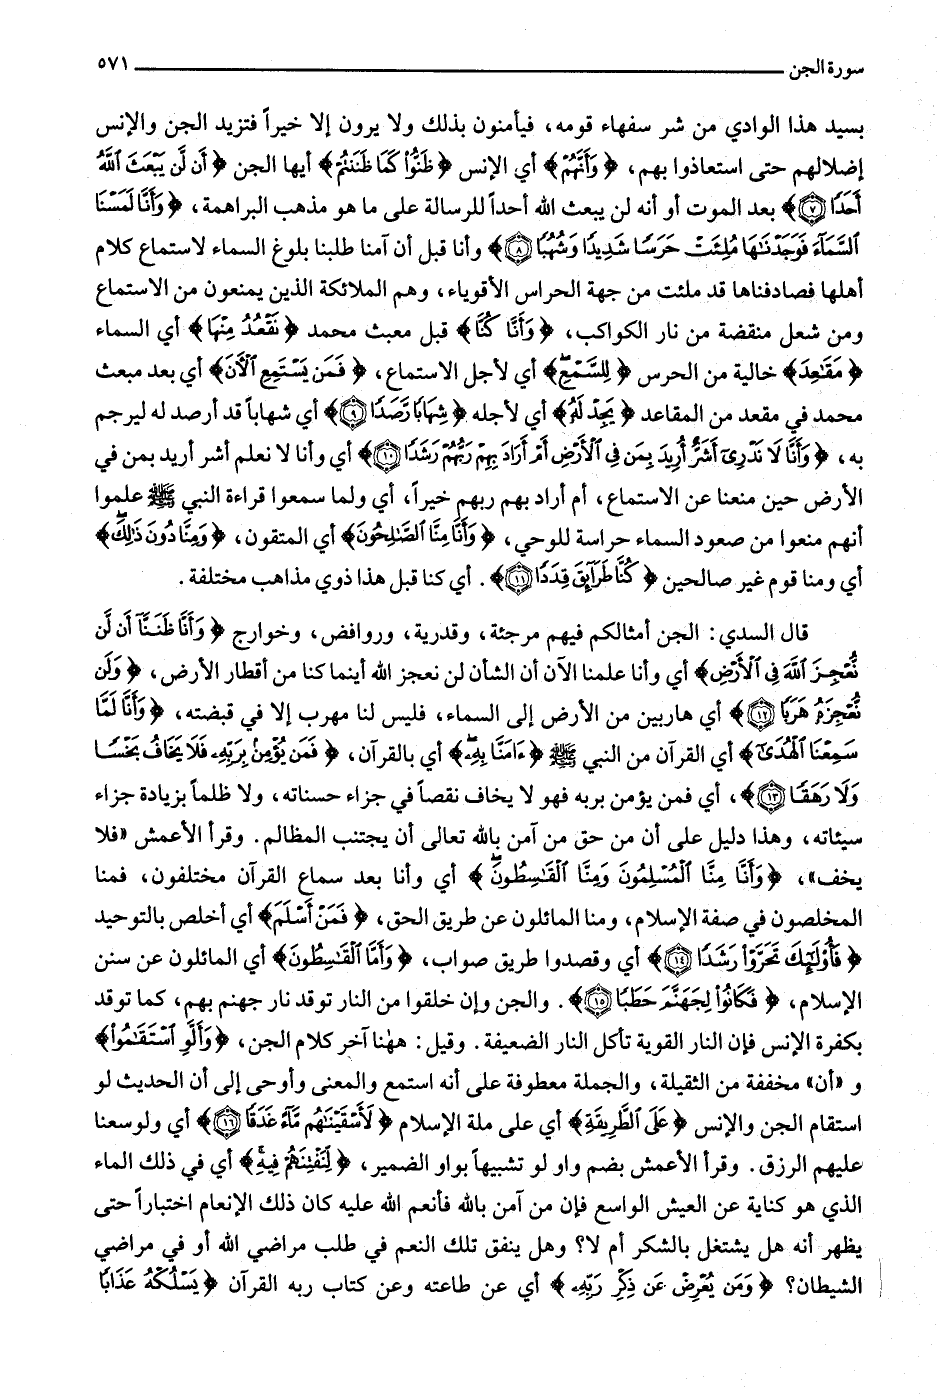 سورة الجن ٥٧١
بسيد هذا الوادي من شر سفهاء قومه، فيأمنون بذلك ولا يرون إلا خيراً فتزيد الجن والإنس
إضلالهم حتى استعاذوا بهم، ﴿وَأَنَّهُمْ﴾ أي الإنس ﴿ظَنُّوا۟ كَمَا ظَنَنتُمْ﴾ أيها الجن ﴿أَن لَّن يَبْعَثَ ٱللَّهُ
أَحَدًا ۝٧﴾ بعد الموت أو أنه لن يبعث الله أحداً للرسالة على ما هو مذهب البراهمة، ﴿وَأَنَّا لَمَسْنَا
ٱلسَّمَآءَ فَوَجَدْنَـٰهَا مُلِئَتْ حَرَسًا شَدِيدًا وَشُهُبًا ۝٨﴾ وأنا قبل أن آمنا طلبنا بلوغ السماء لاستماع كلام
أهلها فصادفناها قد ملئت من جهة الحراس الأقوياء، وهم الملائكة الذين يمنعون من الاستماع
ومن شعل منقضة من نار الكواكب، ﴿وَأَنَّا كُنَّا﴾ قبل مبعث محمد ﴿نَقْعُدُ مِنْهَا﴾ أي السماء
﴿مَقَـٰعِدَ﴾ خالية من الحرس ﴿لِلسَّمْعِ ۖ﴾ أي لأجل الاستماع، ﴿فَمَن يَسْتَمِعِ ٱلْـَٔانَ﴾ أي بعد مبعث
محمد في مقعد من المقاعد ﴿يَجِدْ لَهُۥ﴾ أي لأجله ﴿شِهَابًا رَّصَدًا ۝٩﴾ أي شهاباً قد أرصد له ليرجم
به، ﴿وَأَنَّا لَا نَدْرِىٓ أَشَرٌّ أُرِيدَ بِمَن فِى ٱلْأَرْضِ أَمْ أَرَادَ بِهِمْ رَبُّهُمْ رَشَدًا ۝١٠﴾ أي وأنا لا نعلم أشر أريد بمن في
الأرض حين منعنا عن الاستماع، أم أراد بهم ربهم خيراً، أي ولما سمعوا قراءة النبي ﷺ علموا
أنهم منعوا من صعود السماء حراسة للوحي، ﴿وَأَنَّا مِنَّا ٱلصَّـٰلِحُونَ﴾ أي المتقون، ﴿وَمِنَّا دُونَ ذَٰلِكَ ۖ﴾
أي ومنا قوم غير صالحين ﴿كُنَّا طَرَآئِقَ قِدَدًا ۝١١﴾. أي كنا قبل هذا ذوي مذاهب مختلفة.
قال السدي: الجن أمثالكم فيهم مرجئة، وقدرية، وروافض، وخوارج ﴿وَأَنَّا ظَنَنَّآ أَن لَّن
نُّعْجِزَ ٱللَّهَ فِى ٱلْأَرْضِ﴾ أي وأنا علمنا الآن أن الشأن لن نعجز الله أينما كنا من أقطار الأرض، ﴿وَلَن
نُّعْجِزَهُۥ هَرَبًا ۝١٢﴾ أي هاربين من الأرض إلى السماء، فليس لنا مهرب إلا في قبضته، ﴿وَأَنَّا لَمَّا
سَمِعْنَا ٱلْهُدَىٰٓ﴾ أي القرآن من النبي ﷺ ﴿ءَامَنَّا بِهِۦ ۖ﴾ أي بالقرآن، ﴿فَمَن يُؤْمِنۢ بِرَبِّهِۦ فَلَا يَخَافُ بَخْسًا
وَلَا رَهَقًا ۝١٣﴾، أي فمن يؤمن بربه فهو لا يخاف نقصاً في جزاء حسناته، ولا ظلماً بزيادة جزاء
سيئاته، وهذا دليل على أن من حق من آمن بالله تعالى أن يجتنب المظالم. وقرأ الأعمش «فلا
يخف»، ﴿وَأَنَّا مِنَّا ٱلْمُسْلِمُونَ وَمِنَّا ٱلْقَـٰسِطُونَ ۖ﴾ أي وأنا بعد سماع القرآن مختلفون، فمنا
المخلصون في صفة الإسلام، ومنا المائلون عن طريق الحق، ﴿فَمَنْ أَسْلَمَ﴾ أي أخلص بالتوحيد
﴿فَأُو۟لَـٰٓئِكَ تَحَرَّوْا۟ رَشَدًا ۝١٤﴾ أي وقصدوا طريق صواب، ﴿وَأَمَّا ٱلْقَـٰسِطُونَ﴾ أي المائلون عن سنن
الإسلام، ﴿فَكَانُوا۟ لِجَهَنَّمَ حَطَبًا ۝١٥﴾. والجن وإن خلقوا من النار توقد نار جهنم بهم، كما توقد
بكفرة الإنس فإن النار القوية تأكل النار الضعيفة. وقيل: ههنا آخر كلام الجن، ﴿وَأَلَّوِ ٱسْتَقَـٰمُوا۟﴾
و «أن» مخففة من الثقيلة، والجملة معطوفة على أنه استمع والمعنى وأوحى إلى أن الحديث لو
استقام الجن والإنس ﴿عَلَى ٱلطَّرِيقَةِ﴾ أي على ملة الإسلام ﴿لَأَسْقَيْنَـٰهُم مَّآءً غَدَقًا ۝١٦﴾ أي ولوسعنا
عليهم الرزق. وقرأ الأعمش بضم واو لو تشبيهاً بواو الضمير، ﴿لِّنَفْتِنَهُمْ فِيهِ ۚ﴾ أي في ذلك الماء
الذي هو كناية عن العيش الواسع فإن من آمن بالله فأنعم الله عليه كان ذلك الإنعام اختباراً حتى
يظهر أنه هل يشتغل بالشكر أم لا؟ وهل ينفق تلك النعم في طلب مراضي الله أو في مراضي
الشيطان؟ ﴿وَمَن يُعْرِضْ عَن ذِكْرِ رَبِّهِۦ﴾ أي عن طاعته وعن كتاب ربه القرآن ﴿يَسْلُكْهُ عَذَابًا